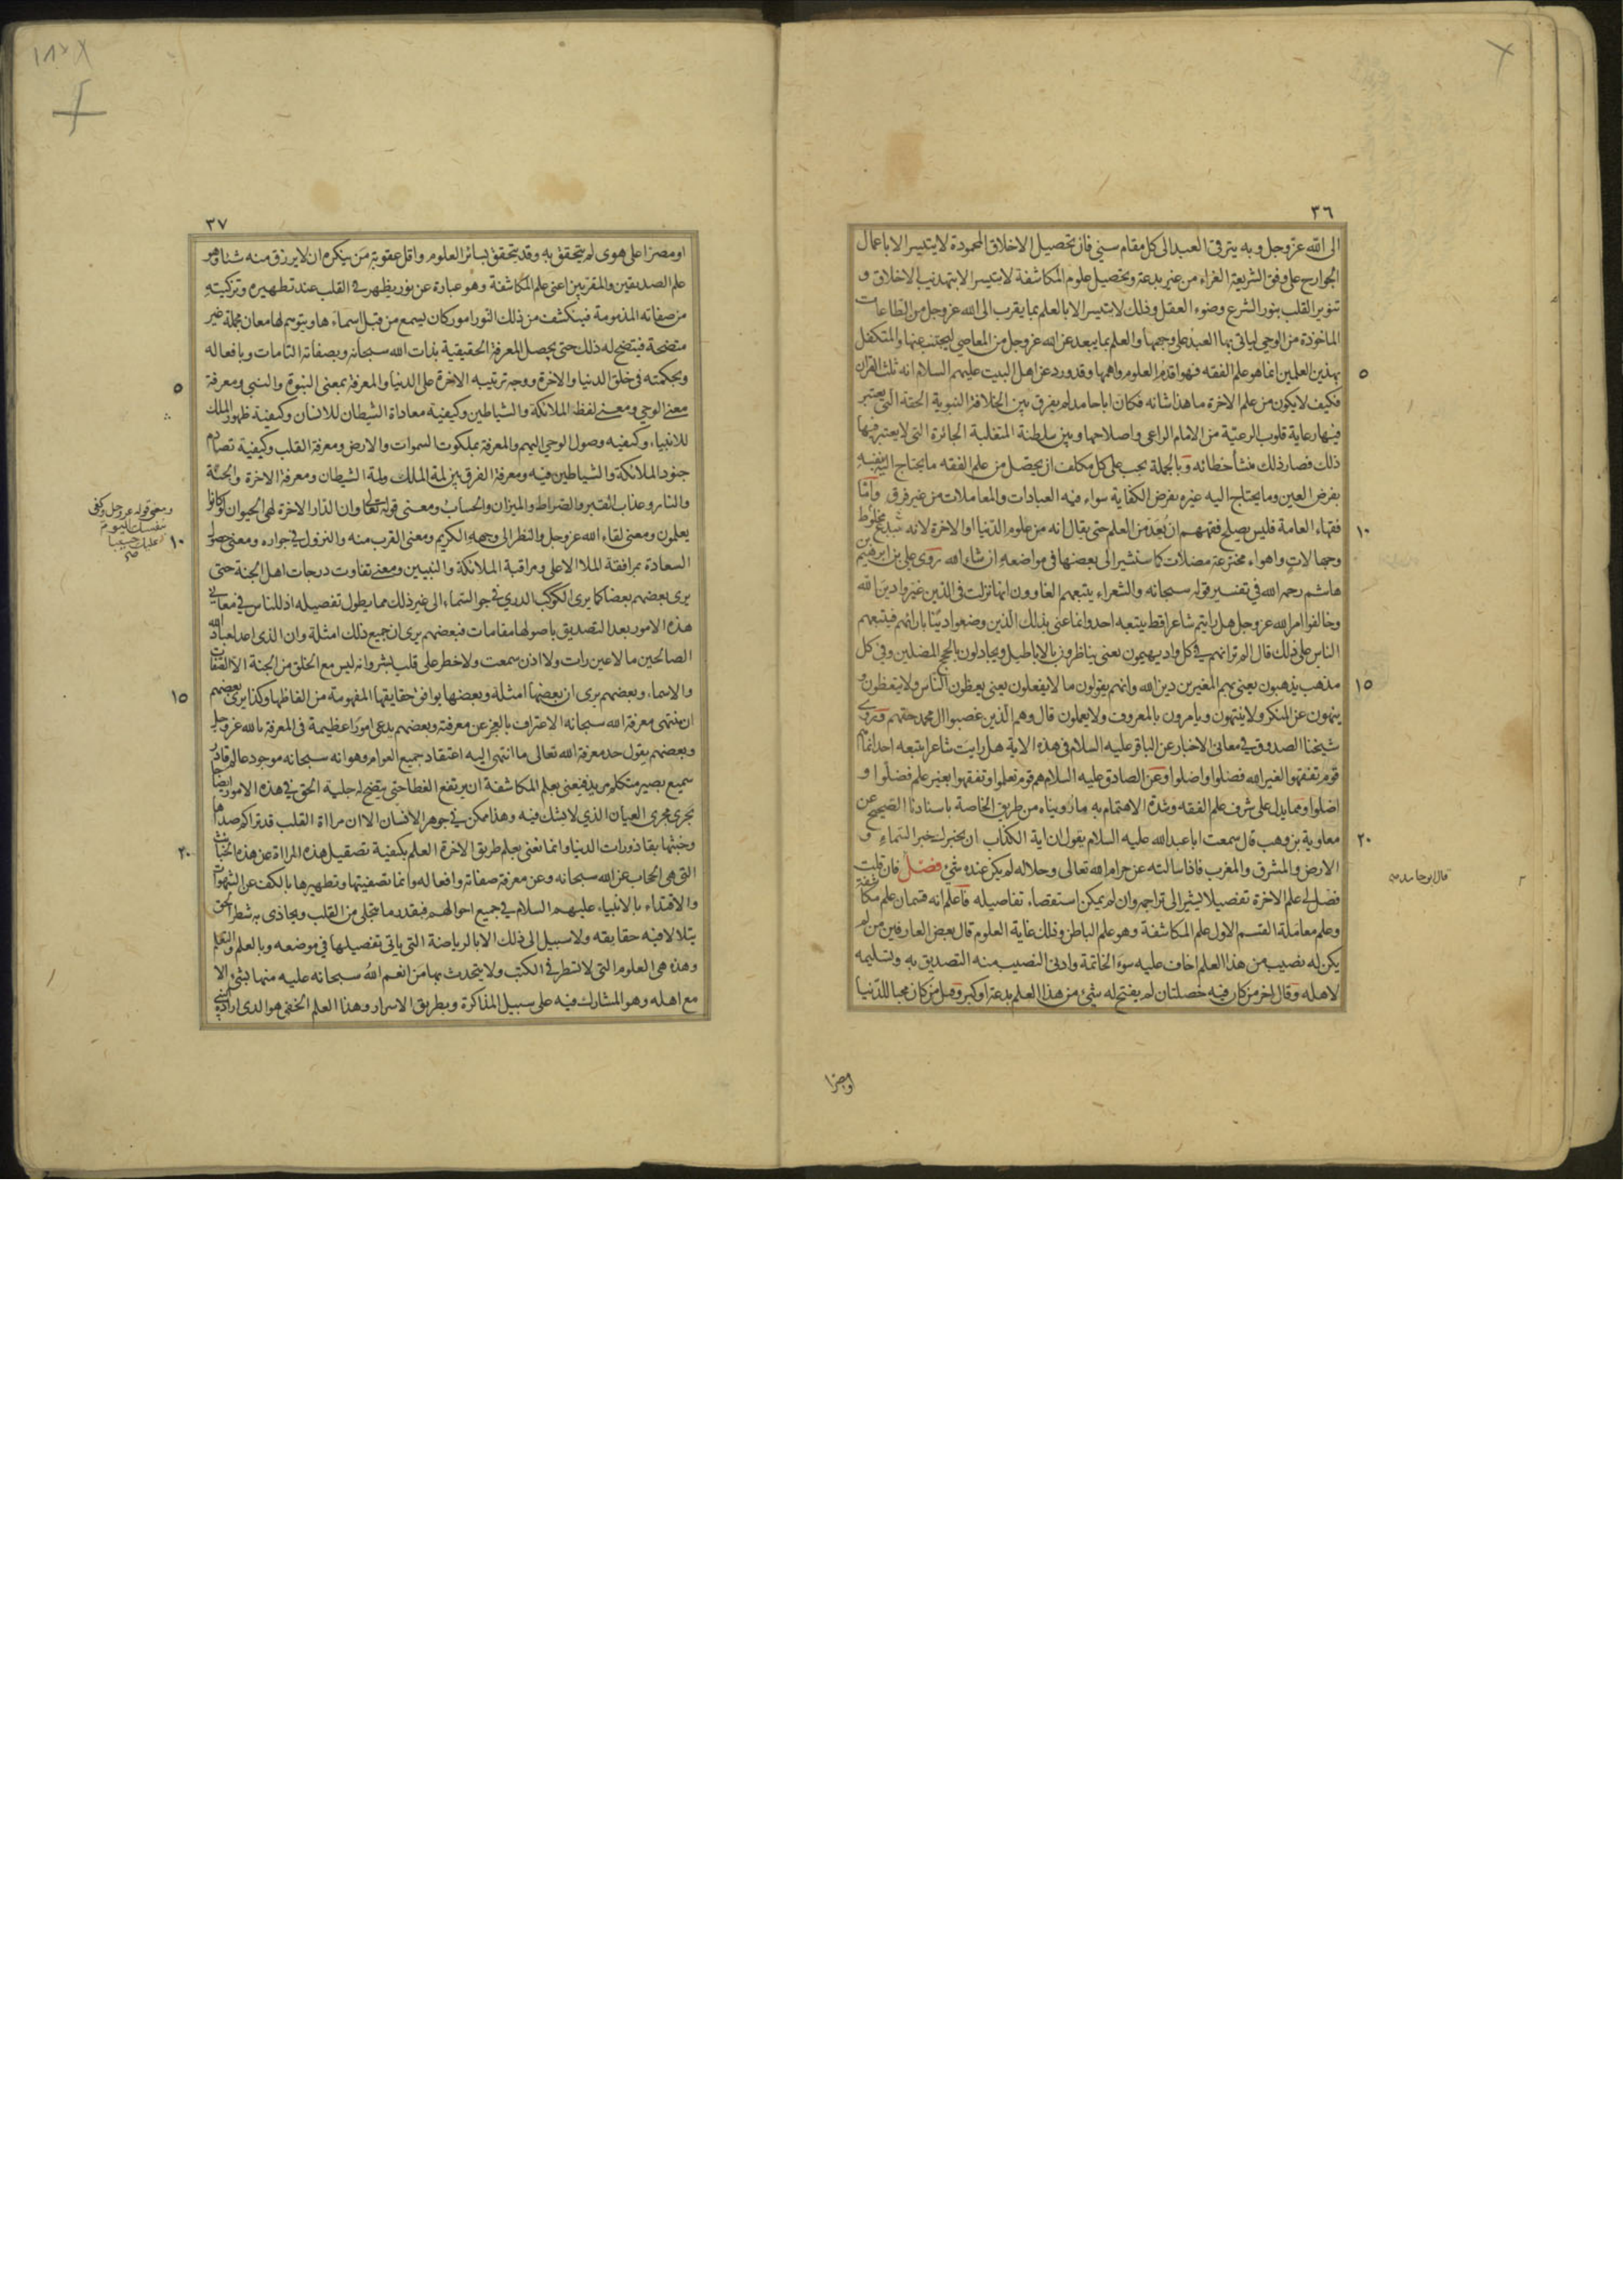 ٣٦
الى الله عز وجل و به يترقى العبد الى كل مقام سني فان تحصيل الاخلاق المحمودة لا يتيسر الا باعمال
الجوارح على وفق الشريعة الغراء من غير بدعة و تحصيل علوم المكاشفة لا يتيسر الا بتهذيب الاخلاق و
تنوير القلب بنور الشرع وضوء العقل وذلك لا يتيسر الا بالعلم بما يقرب الى الله عز وجل من الطاعات
الماخوذة من الوحي لياتى بها العبد على وجهها والعلم بما يبعد عن الله عز وجل من المعاصي ليجتنب عنها والمتكفل
٥
بهذين العلمين انما هو علم الفقه فهو اقدم العلوم واهمها وقد ورد عن اهل البيت عليهم السلام انه ثلث القران
فكيف لا يكون من علم الاخرة ما هذا شانه فكان ابا حامد لم يفرق بين الخلافة النبوية الحقة التي يعتبر
فيها رعاية قلوب الرعية من الامام الراعى واصلاحها وبين سلطنة المتغلبة الجائرة التى لا يعتبر فيها
ذلك فصار ذلك منشأ خطائه وبالجملة يجب على كل مكلف ان يحصل من علم الفقه ما يحتاج اليه بنفسه
بفرض العين وما يحتاج اليه غيره بفرض الكفاية سواء فيه العبادات والمعاملات من غير فرق وأما
١٠
فقهاء العامة فليس يصلح فقههم ان يعد من العلم حتى يقال انه من علوم الدنيا او الاخرة لانه مخلوط ببدع
وجهالات واهواء مخترعة مضلات كما سنشير الى بعضها في مواضعه ان شاء الله روى على بن ابرهيم بن
هاشم رحمه الله في تفسير قوله سبحانه والشعراء يتبعهم الغاوون انها نزلت فى الذين غيروا دين الله
وخالفوا امر الله عز وجل هل رايتم شاعرا قط يتبعه احد وانما عنى بذلك الذين وضعوا دينا بارائهم فيتبعهم
الناس على ذلك قال الم تر انهم في كل واد يهيمون يعنى يناظرون بالاباطيل ويجادلون بالحجج المضلين وفى كل
١٥
مذهب يذهبون يعنى بهم المغيرين دين الله وانهم يقولون ما لا يفعلون يعنى يعظون الناس ولا يتعظون و
ينهون عن المنكر ولا ينتهون ويامرون بالمعروف ولا يعملون قال وهم الذين غصبوا ال محمد حقهم وروى
شيخنا الصدوق في معانى الاخبار عن الباقر عليه السلام فى هذه الاية هل رايت شاعرا يتبعه احد انما هم
قوم تفقهوا لغير الله فضلوا واضلوا وعن الصادق عليه السلام هم قوم تعلموا وتفقهوا بغير علم فضلوا و
اضلوا ومما يدل على شرف علم الفقه وشدة الاهتمام به ما رويناه من طريق الخاصة باسنادنا الصحيح عن
٢٠
معاوية بن وهب قال سمعت ابا عبد الله عليه السلام يقول ان اية الكذاب ان يخبرك خبر السماء و
الارض والمشرق والمغرب فاذا سالته عن حرام الله تعالى وحلاله لم يكن عنده شيء فصل فان قلت
فضل لى علم الاخرة تفصيلا يشير الى تراجمه وان لم يمكن استقصاء تفاصيله فاعلم انه قسمان علم مكاشفة
وعلم معاملة القسم الاول علم المكاشفة وهو علم الباطن وذلك غاية العلوم قال بعض العارفين من لم
يكن له نصيب من هذا العلم اخاف عليه سوء الخاتمة وادنى النصيب منه التصديق به وتسليمه
لاهله وقال اخر من كان فيه خصلتان لم يفتح له شيء من هذا العلم بدعة او كبر وقيل من كان محبا للدنيا
او مصرا
قال ابو حامد
٣٧
او مصرا على هوى لم يتحقق به وقد يتحقق بسائر العلوم واقل عقوبة من ينكره ان لا يرزق منه شئا وهو
علم الصديقين والمقربين اعنى علم المكاشفة وهو عبارة عن نور يظهر في القلب عند تطهيره وتزكيته
من صفاته المذمومة فينكشف من ذلك النور امور كان يسمع من قبل اسماءها ويتوهم لها معان مجملة غير
متضحة فيتضح له ذلك حتى يحصل المعرفة الحقيقية بذات الله سبحانه وبصفاته التامات وبافعاله
٥
وبحكمته فى خلق الدنيا والاخرة ووجه ترتيبه الاخرة على الدنيا والمعرفة بمعنى النبوة والنبى ومعرفة
معنى الوحي ومعنى لفظة الملائكة والشياطين وكيفية معاداة الشيطان للانسان وكيفية ظهور الملك
للانبياء وكيفيه وصول الوحى اليهم والمعرفة بملكوت السموات والارض ومعرفة القلب وكيفية تصادم
جنود الملائكة والشياطين فيه ومعرفة الفرق بين لمة الملك ولمة الشيطان ومعرفة الاخرة والجنة
والنار وعذاب القبر والصراط والميزان والحساب ومعنى قوله تعالى وان الدار الاخرة لهى الحيوان لو كانوا
١٠
يعلمون ومعنى لقاء الله عز وجل والنظر الى وجهه الكريم ومعنى القرب منه والنزول في جواره ومعنى حصول
السعادة بمرافقة الملا الاعلى ومراقبة الملائكة والنبيين ومعنى تفاوت درجات اهل الجنة حتى
يرى بعضهم بعضا كما يرى الكوكب الدرى في جو السماء الى غير ذلك مما يطول تفصيله اذ للناس في معاني
هذه الامور بعد التصديق باصولها مقامات فبعضهم يرى ان جميع ذلك امثلة وان الذى اعد لعباد الله
الصالحين ما لا عين رات ولا اذن سمعت ولا خطر على قلب بشر وانه ليس مع الخلق من الجنة الا الصفات
١٥
والاسماء وبعضهم يرى ان بعضها امثلة وبعضها يوافق حقايقها المفهومة من الفاظها وكذا يرى بعضهم
ان منتهى معرفة الله سبحانه الاعتراف بالعجز عن معرفته وبعضهم يدعى امورا عظيمة فى المعرفة بالله عز وجل
وبعضهم يقول حد معرفة الله تعالى ما انتهى اليه اعتقاد جميع العوام وهو انه سبحانه موجود عالم قادر
سميع بصير متكلم مريد فنعنى بعلم المكاشفة ان يرتفع الغطا حتى يتضح له جلية الحق في هذه الامور ايضاحا
يجرى مجرى العيان الذي لا يشك فيه وهذا ممكن في جوهر الانسان الا ان مرااة القلب قد تراكم صداها
٢٠
وخبثها بقاذورات الدنيا وانما نعنى بعلم طريق الاخرة العلم بكيفية تصقيل هذه المرااة عن هذه الخبائث
التى هى الحجاب عن الله سبحانه وعن معرفة صفاته وافعاله وانما تصفيتها وتطهيرها بالكف عن الشهوات
والاقتداء بالانبياء عليهم السلام في جميع احوالهم فبقدر ما ينجلى من القلب ويحاذى به شطر الحق
يتلالا فيه حقايقه ولا سبيل الى ذلك الا بالرياضة التى ياتى تفصيلها في موضعه وبالعلم والتعلم
وهذه هى العلوم التى لا تسطر في الكتب ولا يتحدث بها من انعم الله سبحانه عليه منها بشئ الا
مع اهله وهو المشارك فيه على سبيل المذاكرة وبطريق الاسرار وهذا العلم الخفى هو الذى اراد النبى
ومعنى قوله عز وجل وكفى
بنفسك اليوم
عليك حسيبا
صح